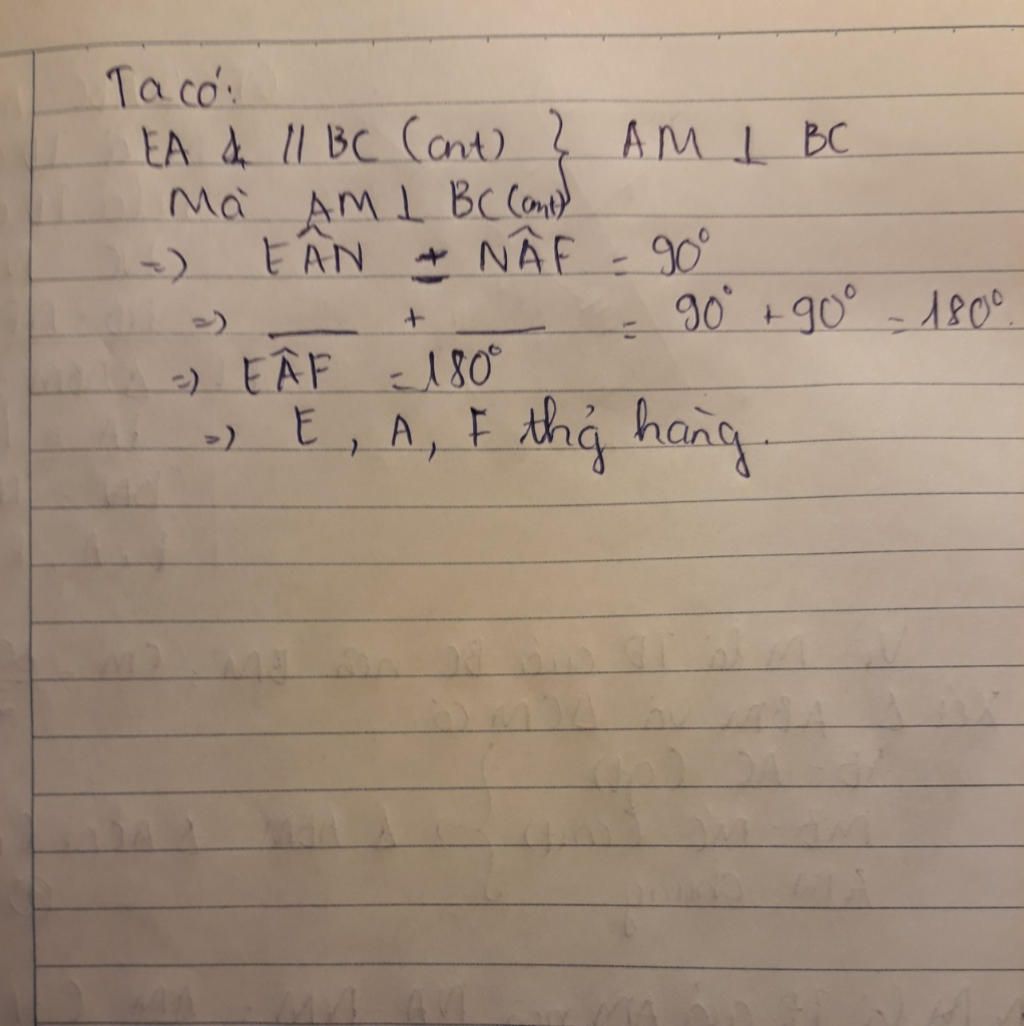 Ta có:
EA // BC (cmt) } AM ⊥ BC
Mà AM ⊥ BC (cmt)
=) EÂN + NÂF = 90°
=) ___ + ___ = 90° + 90° = 180°.
=) EÂF = 180°
=) E, A, F thẳg hàng.